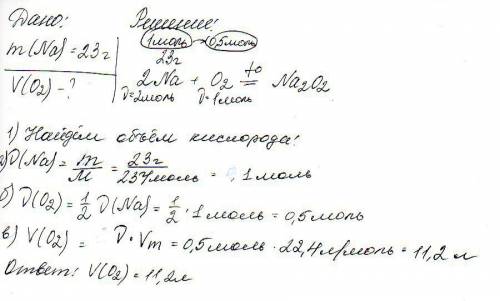 Дано:
Решение:
1моль - 0,5моль
m(Na)=23г
23г
V(O₂) - ?
2Na + O₂ t° = Na₂O₂
ν=2моль ν=1моль
1) Найдём объём кислорода:
а) ν(Na) = m/M = 23г/23г/моль = 1моль
б) ν(O₂) = 1/2 ν(Na) = 1/2 · 1моль = 0,5моль
в) V(O₂) = ν · Vm = 0,5моль · 22,4л/моль = 11,2л
Ответ: V(O₂) = 11,2л